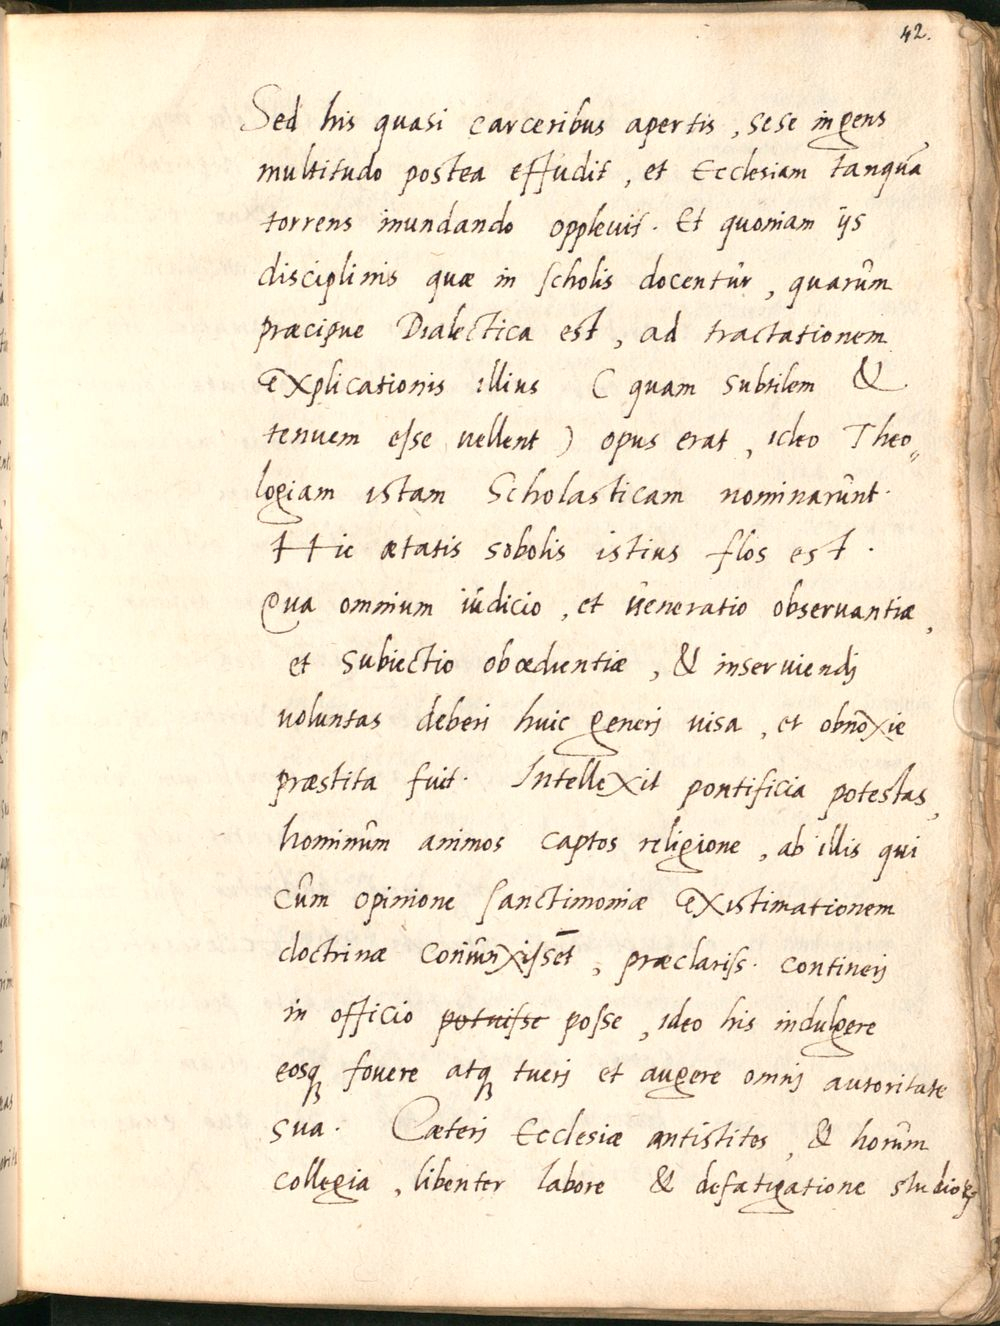 42.
Sed his quasi carceribus apertis, sese ingens
multitudo postea effudit, et Ecclesiam tanquã
torrens inundando opplevit. Et quoniam ijs
disciplinis quæ in scholis docentur, quarum
præcipue Dialectica est, ad tractationem
explicationis illius ( quam subtilem &
tenuem esse vellent ) opus erat, ideo Theo„
logiam istam Scholasticam nominarunt.
Hic ætatis sobolis istius flos est.
Qua omnium iudicio, et veneratio observantiæ,
et subiectio obœdientiæ, & inserviendi
voluntas deberi huic generi visa, et obnoxie
præstita fuit. Intellexit pontificia potestas,
hominum animos captos religione, ab illis qui
cum opinione sanctimoniæ existimationem
doctrinæ coniunxissēt, præclariss. contineri
in officio potuisse posse, ideo his indulgere
eosq fovere atq tueri et augere omni autoritate
sua. Cæteri Ecclesiæ antistites, & horum
collegia, libenter labore & defatigatione